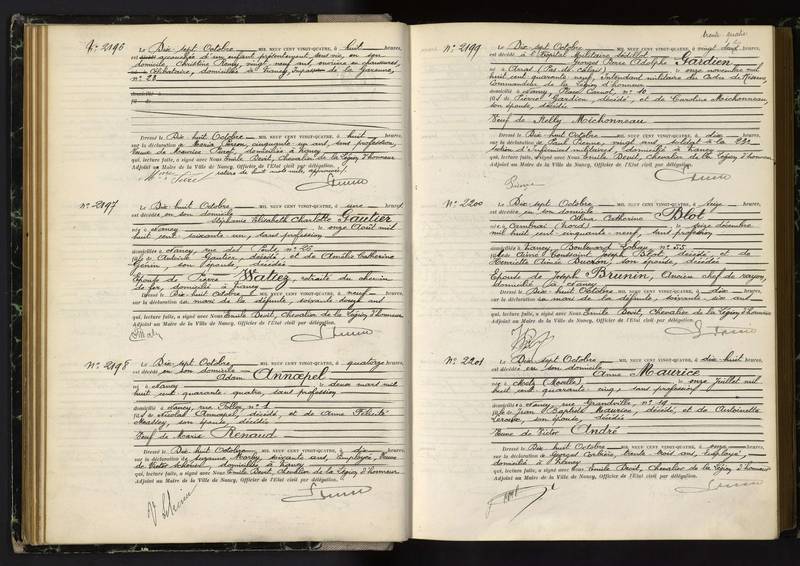 N° 2196
Le Dix sept Octobre, MIL NEUF CENT VINGT-QUATRE, à huit heures,
est accouchée d'un enfant prétendument sans vie, en son
domicile, Christine Remy, vingt neuf ans, ouvrière en chaussures,
célibataire, domiciliée à Nancy, de la Garenne,
n° 23
Dressé le Dix huit Octobre, MIL NEUF CENT VINGT-QUATRE, à huit heures,
sur la déclaration de Maria cinquante un ans, sans profession,
Veuve de Maurice domiciliée à Nancy
qui, lecture faite, a signé avec Nous Emile Devit, Chevalier de la Légion d'honneur
Adjoint au Maire de la Ville de Nancy, Officier de l'Etat civil par délégation.
N° 2197
Le Dix huit Octobre, MIL NEUF CENT VINGT-QUATRE, à une heures
est décédée en son domicile
Stéphanie Elisabeth Charlotte Gautier
née à Nancy le onze Août mil
huit cent soixante un, sans profession
domiciliée à Nancy, rue des Ponts n° 26
fille de Antoine Gautier, décédé, et de Amélie Catherine
Génin, son épouse, décédée
Epouse de Pierre Waltiez, retraité du chemin
de fer, domicilié à Nancy
Dressé le Dix huit Octobre, MIL NEUF CENT VINGT-QUATRE, à neuf heures,
sur la déclaration du mari de la défunte, soixante douze ans
qui, lecture faite, a signé avec Nous Emile Devit, Chevalier de la Légion d'honneur
Adjoint au Maire de la Ville de Nancy, Officier de l'Etat civil par délégation.
N° 2198
Le Dix sept Octobre, MIL NEUF CENT VINGT-QUATRE, à quatorze heures,
est décédé en son domicile
Adam Annoepel
né à Nancy le deux mars mil
huit cent quarante quatre, sans profession
domicilié à Nancy, rue Folley n° 1
fils de Nicolas Annoepel, décédé, et de Anne Félicité
son épouse décédée
Veuf de Marie Renaud
Dressé le Dix huit Octobre, MIL NEUF CENT VINGT-QUATRE, à dix heures,
sur la déclaration de Suzanne soixante ans, employée, Veuve
de Victor domiciliée à Nancy
qui, lecture faite, a signé avec Nous Emile Devit, chevalier de la Légion d'honneur
Adjoint au Maire de la Ville de Nancy, Officier de l'Etat civil par délégation.
trente-quatre
N° 2199
Le Dix sept Octobre, MIL NEUF CENT VINGT-QUATRE, à vingt deux heures,
est décédé à l'hôpital Militaire Sédillot
Georges Pierre Adolphe Gardien
né à Arras (Pas de Calais) le onze novembre mil
huit cent quarante neuf, Intendant militaire du Cadre de Réserve,
Commandeur de la Légion d'honneur
domicilié à Nancy, Place Carnot, n° 10
fils de Pierre Gardien, décédé, et de Caroline Michonneau
son épouse, décédée
Veuf de Nelly Michonneau
Dressé le Dix huit Octobre, MIL NEUF CENT VINGT-QUATRE, à dix heures,
sur la déclaration de Paul Pienne, vingt ans, soldat à la 23e
Section d'Infirmiers militaires, domicilié à Nancy
qui, lecture faite, a signé avec Nous Emile Devit, Chevalier de la Légion d'honneur
Adjoint au Maire de la Ville de Nancy, Officier de l'Etat civil par délégation.
N° 2200
Le Dix sept Octobre, MIL NEUF CENT VINGT-QUATRE, à seize heures,
est décédée en son domicile
Catherine Blot
née à Cambrai (Nord) le seize décembre
mil huit cent cinquante neuf, sans profession
domiciliée à Nancy, Boulevard Lobau n° 55
fille de Aimé Toussaint Joseph Blot, décédé, et de
Henriette Aimée Buchon, son épouse, décédée
Epouse de Joseph Brunin, Ancien chef de rayon,
domicilié à Nancy
Dressé le Dix huit Octobre, MIL NEUF CENT VINGT-QUATRE, à dix heures,
sur la déclaration du mari de la défunte, soixante six ans
qui, lecture faite, a signé avec Nous Emile Devit, Chevalier de la Légion d'honneur
Adjoint au Maire de la Ville de Nancy, Officier de l'Etat civil par délégation.
N° 2201
Le Dix sept Octobre, MIL NEUF CENT VINGT-QUATRE, à dix huit heures,
est décédée en son domicile
Anne Maurice
née à Metz (Moselle) le onze Juillet mil
huit cent quarante cinq, sans profession
domiciliée à Nancy, rue Grandville, n° 19
fille de Jean Baptiste Maurice, décédé, et de Antoinette
son épouse décédée
Veuve de Victor André
Dressé le Dix huit Octobre, MIL NEUF CENT VINGT-QUATRE, à onze heures,
sur la déclaration de Georges Corbière, trente trois ans, employé,
domicilié à Nancy
qui, lecture faite, a signé avec Nous Emile Devit, Chevalier de la Légion d'honneur
Adjoint au Maire de la Ville de Nancy, Officier de l'Etat civil par délégation.